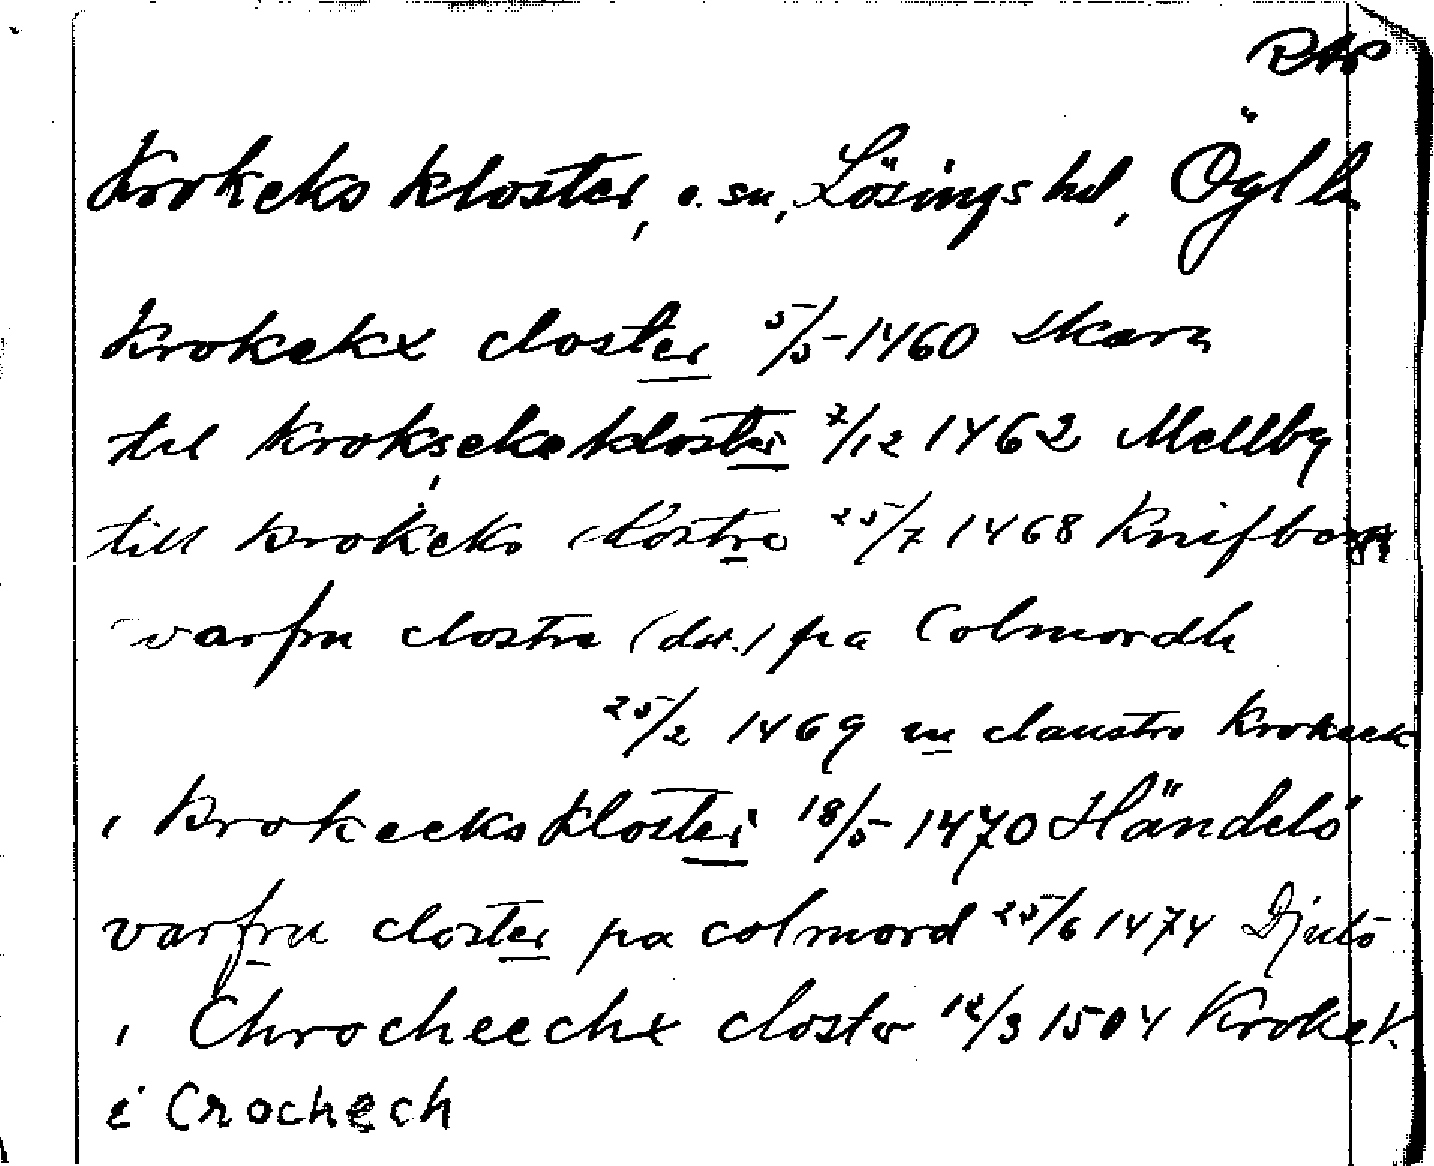 RAP
Krokeks kloster, o. sn, Lösings hd, Ögl ln
Krokekx closter 5/5-1460 Skara
til Kroksekekloster 7/12 1462 Mellby
till Krokeks clostre 25/7 1468 Knifborgh
varfru clostre (dat.) pa Colmordh
25/2 1469 in claustro Krokeek
i Krokeeks kloster 18/5-1470 Händelö
varfru closter pa colmord 25/6 1474 Djulö
i Chrocheechx closter 12/3 1504 Krokek
i Crochech